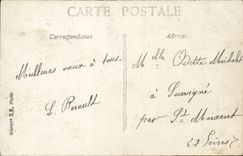 CARTE POSTALE
Correspondance
Adresse
Mlle Odette
Meilleurs vœux à tous.
à Souvigné
L. Perault
par St Maixent
(2 Sèvres)
Marque E.R. Paris